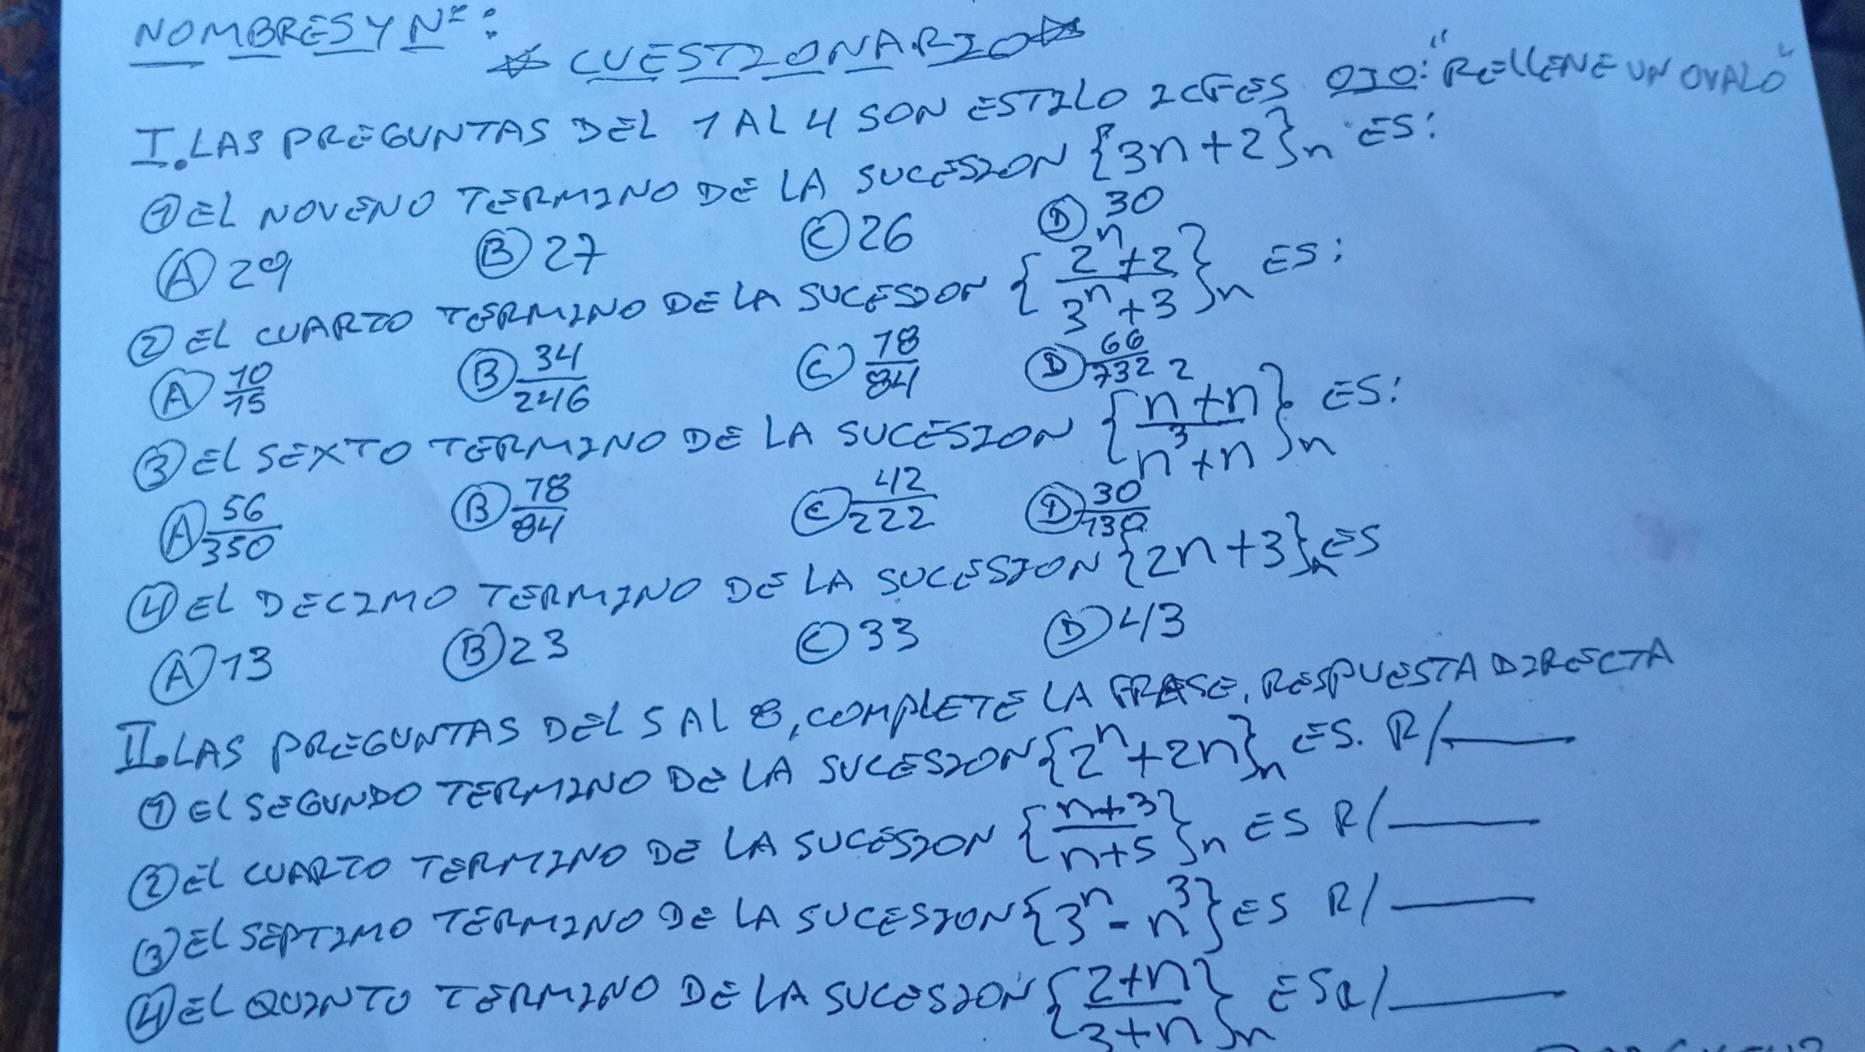 NOMBRES Y Nº:
☆ CUESTIONARIO ☆
I. LAS PREGUNTAS DEL 1 AL 4 SON ESTILO ICFES OJO: "RELLENE UN OVALO"
① EL NOVENO TERMINO DE LA SUCESION {3n+2}n ES:
Ⓐ 29 Ⓑ 27 Ⓒ 26 Ⓓ 30
② EL CUARTO TERMINO DE LA SUCESION {(2^n+2)/(3^n+3)}n ES:
Ⓐ 10/15 Ⓑ 34/246 Ⓒ 18/84 Ⓓ 66/732
③ EL SEXTO TERMINO DE LA SUCESION {(n²+n)/(n³+n)}n ES:
Ⓐ 56/350 Ⓑ 78/84 Ⓒ 42/222 Ⓓ 30/130
④ EL DECIMO TERMINO DE LA SUCESION {2n+3}n ES
Ⓐ 13 Ⓑ 23 Ⓒ 33 Ⓓ 43
II. LAS PREGUNTAS DEL 5 AL 8, COMPLETE LA FRASE, RESPUESTA DIRECTA
① EL SEGUNDO TERMINO DE LA SUCESION {2^n+2n}n ES. R/______
② EL CUARTO TERMINO DE LA SUCESION {(n+3)/(n+5)}n ES R/______
③ EL SEPTIMO TERMINO DE LA SUCESION {3^n-n³} ES R/______
④ EL QUINTO TERMINO DE LA SUCESION {(2+n)/(3+n)}n ES R/______